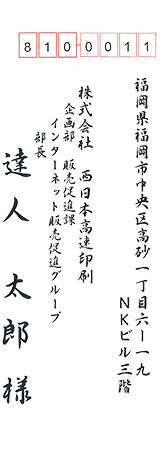 8100011
福岡県福岡市中央区高砂一丁目六ー一九
NKビル三階
株式会社 西日本高速印刷
企画部 販売促進課
インターネット販売促進グループ
部長
達人 太郎 様